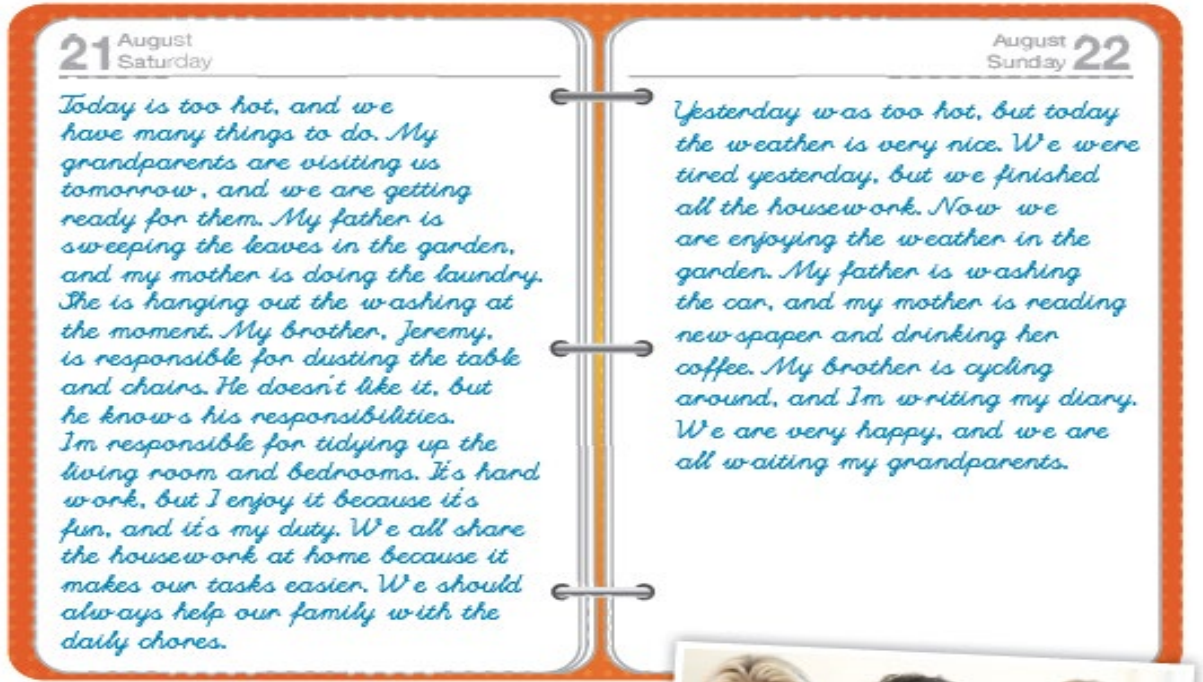 21 August
Saturday
Today is too hot, and we
have many things to do. My
grandparents are visiting us
tomorrow, and we are getting
ready for them. My father is
sweeping the leaves in the garden,
and my mother is doing the laundry.
She is hanging out the washing at
the moment. My brother, Jeremy,
is responsible for dusting the table
and chairs. He doesn't like it, but
he knows his responsibilities.
I'm responsible for tidying up the
living room and bedrooms. It's hard
work, but I enjoy it because it's
fun, and it's my duty. We all share
the housework at home because it
makes our tasks easier. We should
always help our family with the
daily chores.
August 22
Sunday
Yesterday was too hot, but today
the weather is very nice. We were
tired yesterday, but we finished
all the housework. Now we
are enjoying the weather in the
garden. My father is washing
the car, and my mother is reading
newspaper and drinking her
coffee. My brother is cycling
around, and I'm writing my diary.
We are very happy, and we are
all waiting my grandparents.